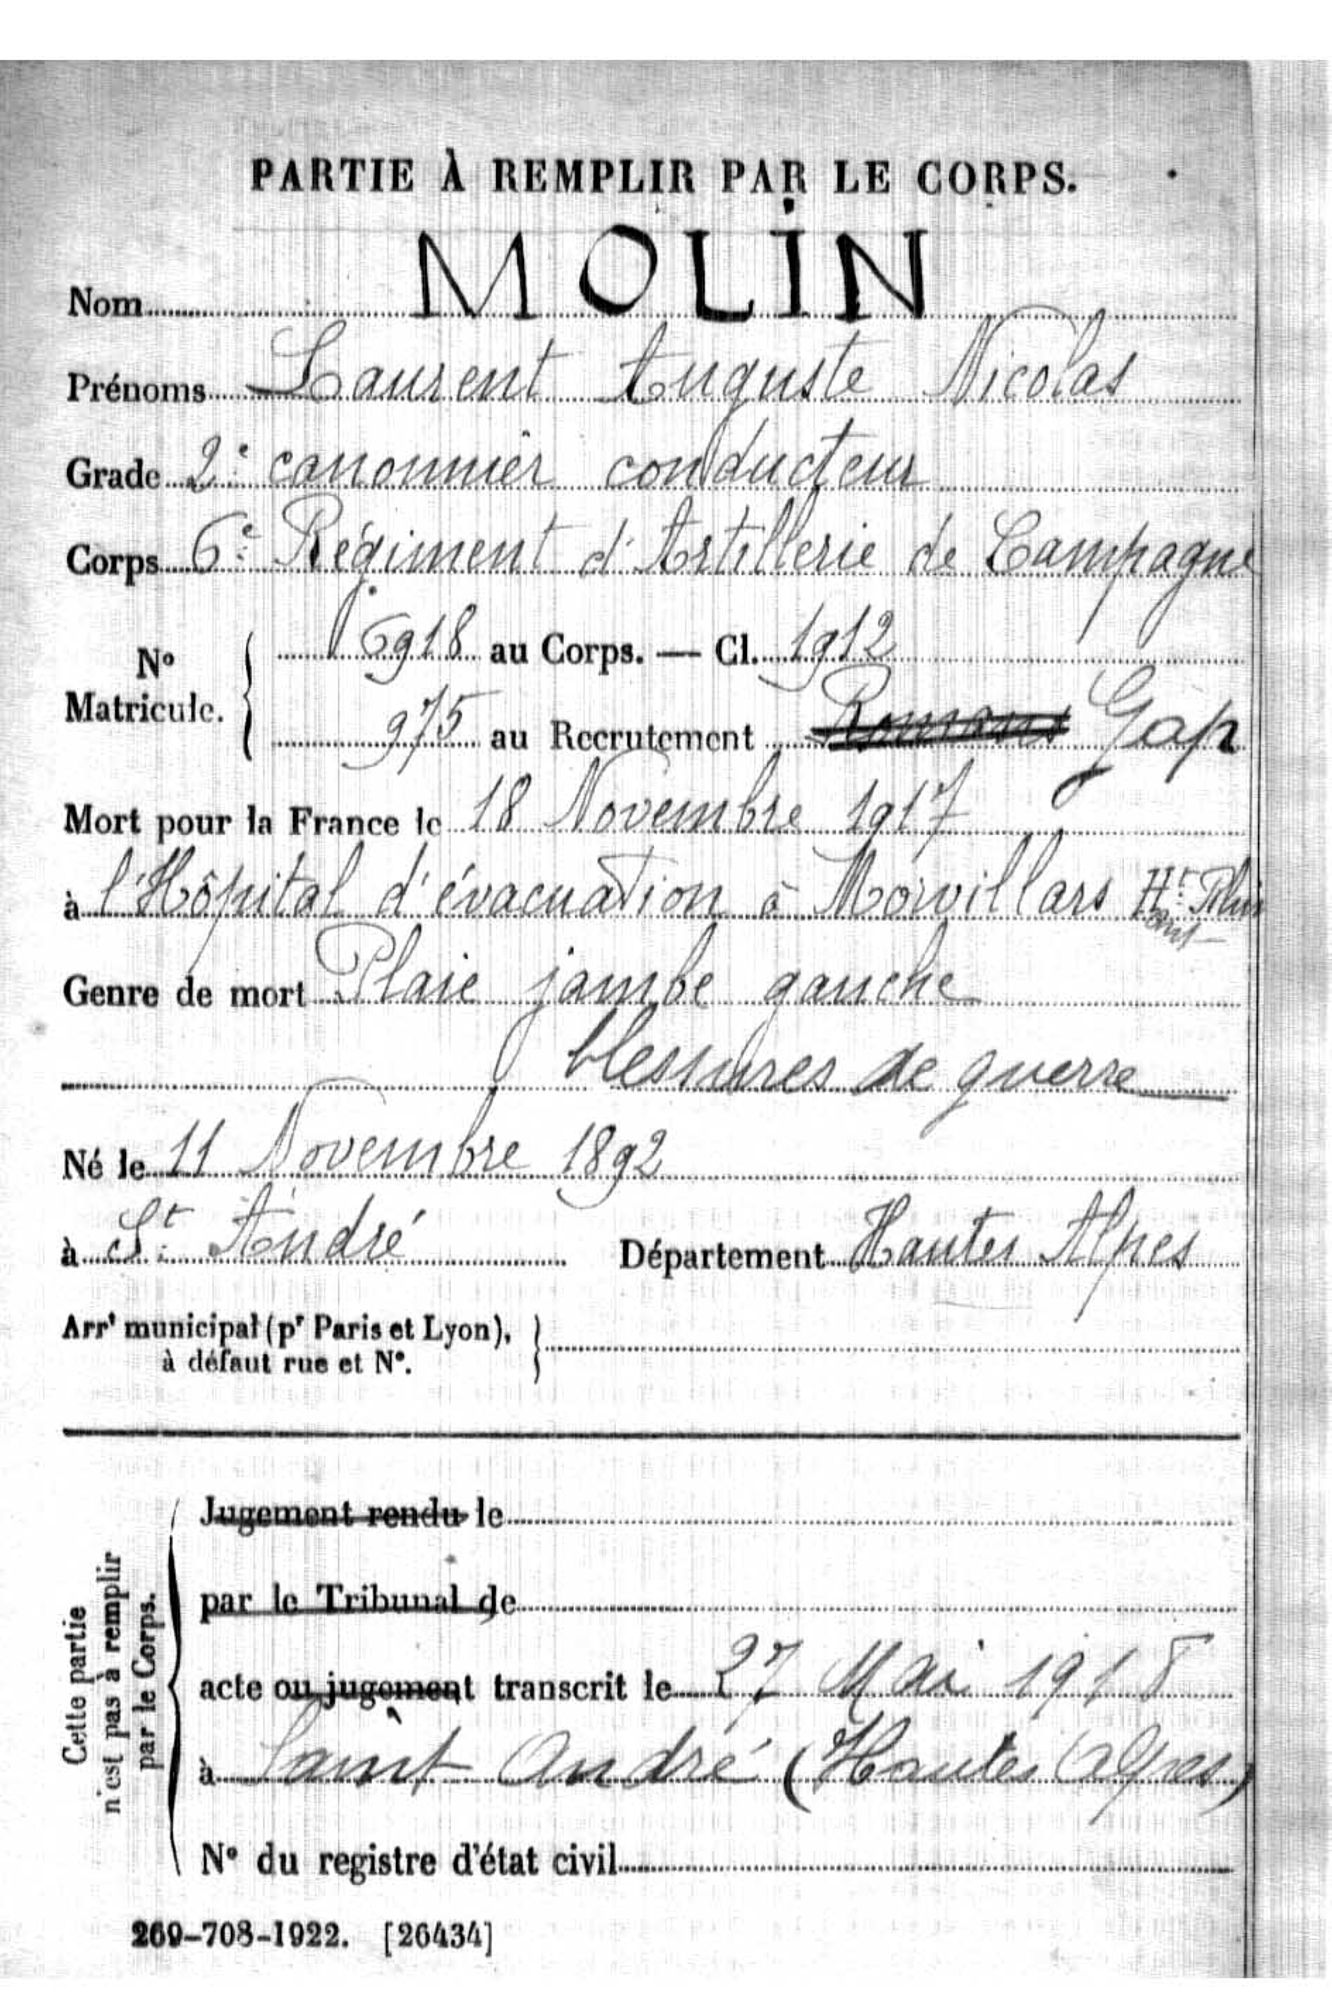 PARTIE À REMPLIR PAR LE CORPS.
Nom MOLIN
Prénoms Laurent Auguste Nicolas
Grade 2e canonnier conducteur
Corps 6e Régiment d'Artillerie de Campagne
N° Matricule. 6918 au Corps. — Cl. 1912
975 au Recrutement Romans Gap
Mort pour la France le 18 Novembre 1917
à l'Hôpital d'évacuation à Morvillars Ht Rhin
Genre de mort Plaie jambe gauche
blessures de guerre
Né le 11 Novembre 1892
à St André Département Hautes Alpes
Arrt municipal (pr Paris et Lyon),
à défaut rue et N°.
Cette partie n'est pas à remplir par le Corps.
Jugement rendu le
par le Tribunal de
acte ou jugement transcrit le 27 Mai 1918
à Saint André (Hautes Alpes)
N° du registre d'état civil
269-708-1922. [26434]